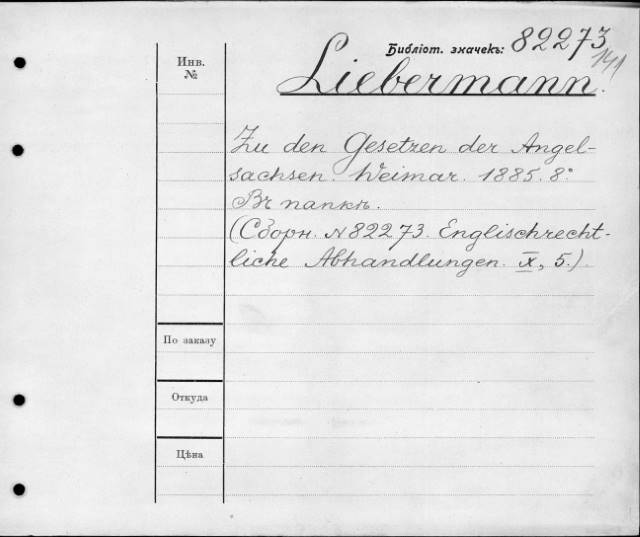 Библіот. значекъ: 82273
141
Инв.
№
Liebermann.
Zu den Gesetzen der Angel-
sachsen. Weimar. 1885. 8°.
Въ папкѣ.
(Сборн. № 82273. Englischrecht-
liche Abhandlungen. X, 5.)
По заказу
Откуда
Цѣна